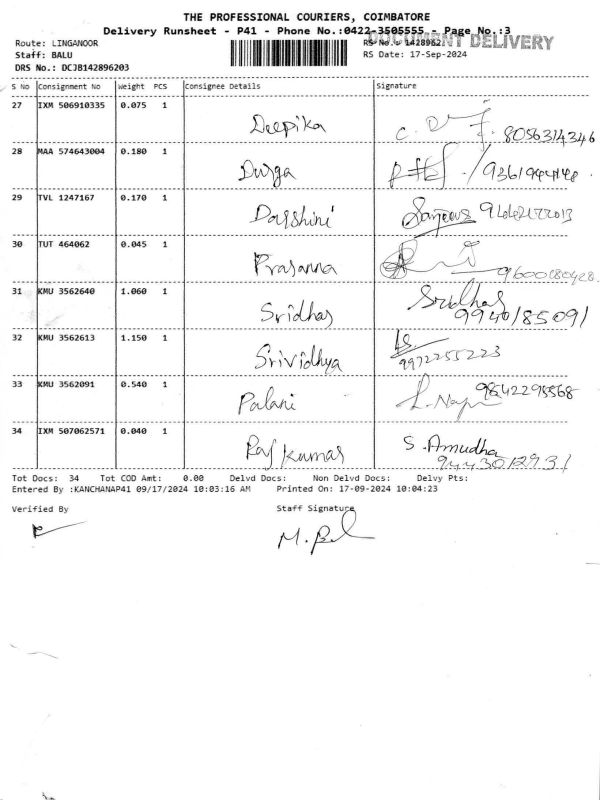 THE PROFESSIONAL COURIERS, COIMBATORE
Delivery Runsheet - P41 - Phone No.:0422-3505555 - Page No.:3
DOCUMENT DELIVERY
Route: LINGANOOR
RS No.: 1428962
Staff: BALU
RS Date: 17-Sep-2024
DRS No.: DCJB142896203
S No Consignment No Weight PCS Consignee Details Signature
27 IXM 506910335 0.075 1 Deepika 8056314346
28 MAA 574643004 0.180 1 Durga
29 TVL 1247167 0.170 1 Darshini Sanjeev
30 TUT 464062 0.045 1 Prasanna
31 KMU 3562640 1.060 1 Sridhar Sridhar 9940185091
32 KMU 3562613 1.150 1 Srividhya 9972255223
33 KMU 3562091 0.540 1 Palani 9842295568
34 IXM 507062571 0.040 1 Rajkumar S. Amudha 9443012931
Tot Docs: 34 Tot COD Amt: 0.00 Delvd Docs: Non Delvd Docs: Delvy Pts:
Entered By :KANCHANAP41 09/17/2024 10:03:16 AM Printed On: 17-09-2024 10:04:23
Verified By Staff Signature